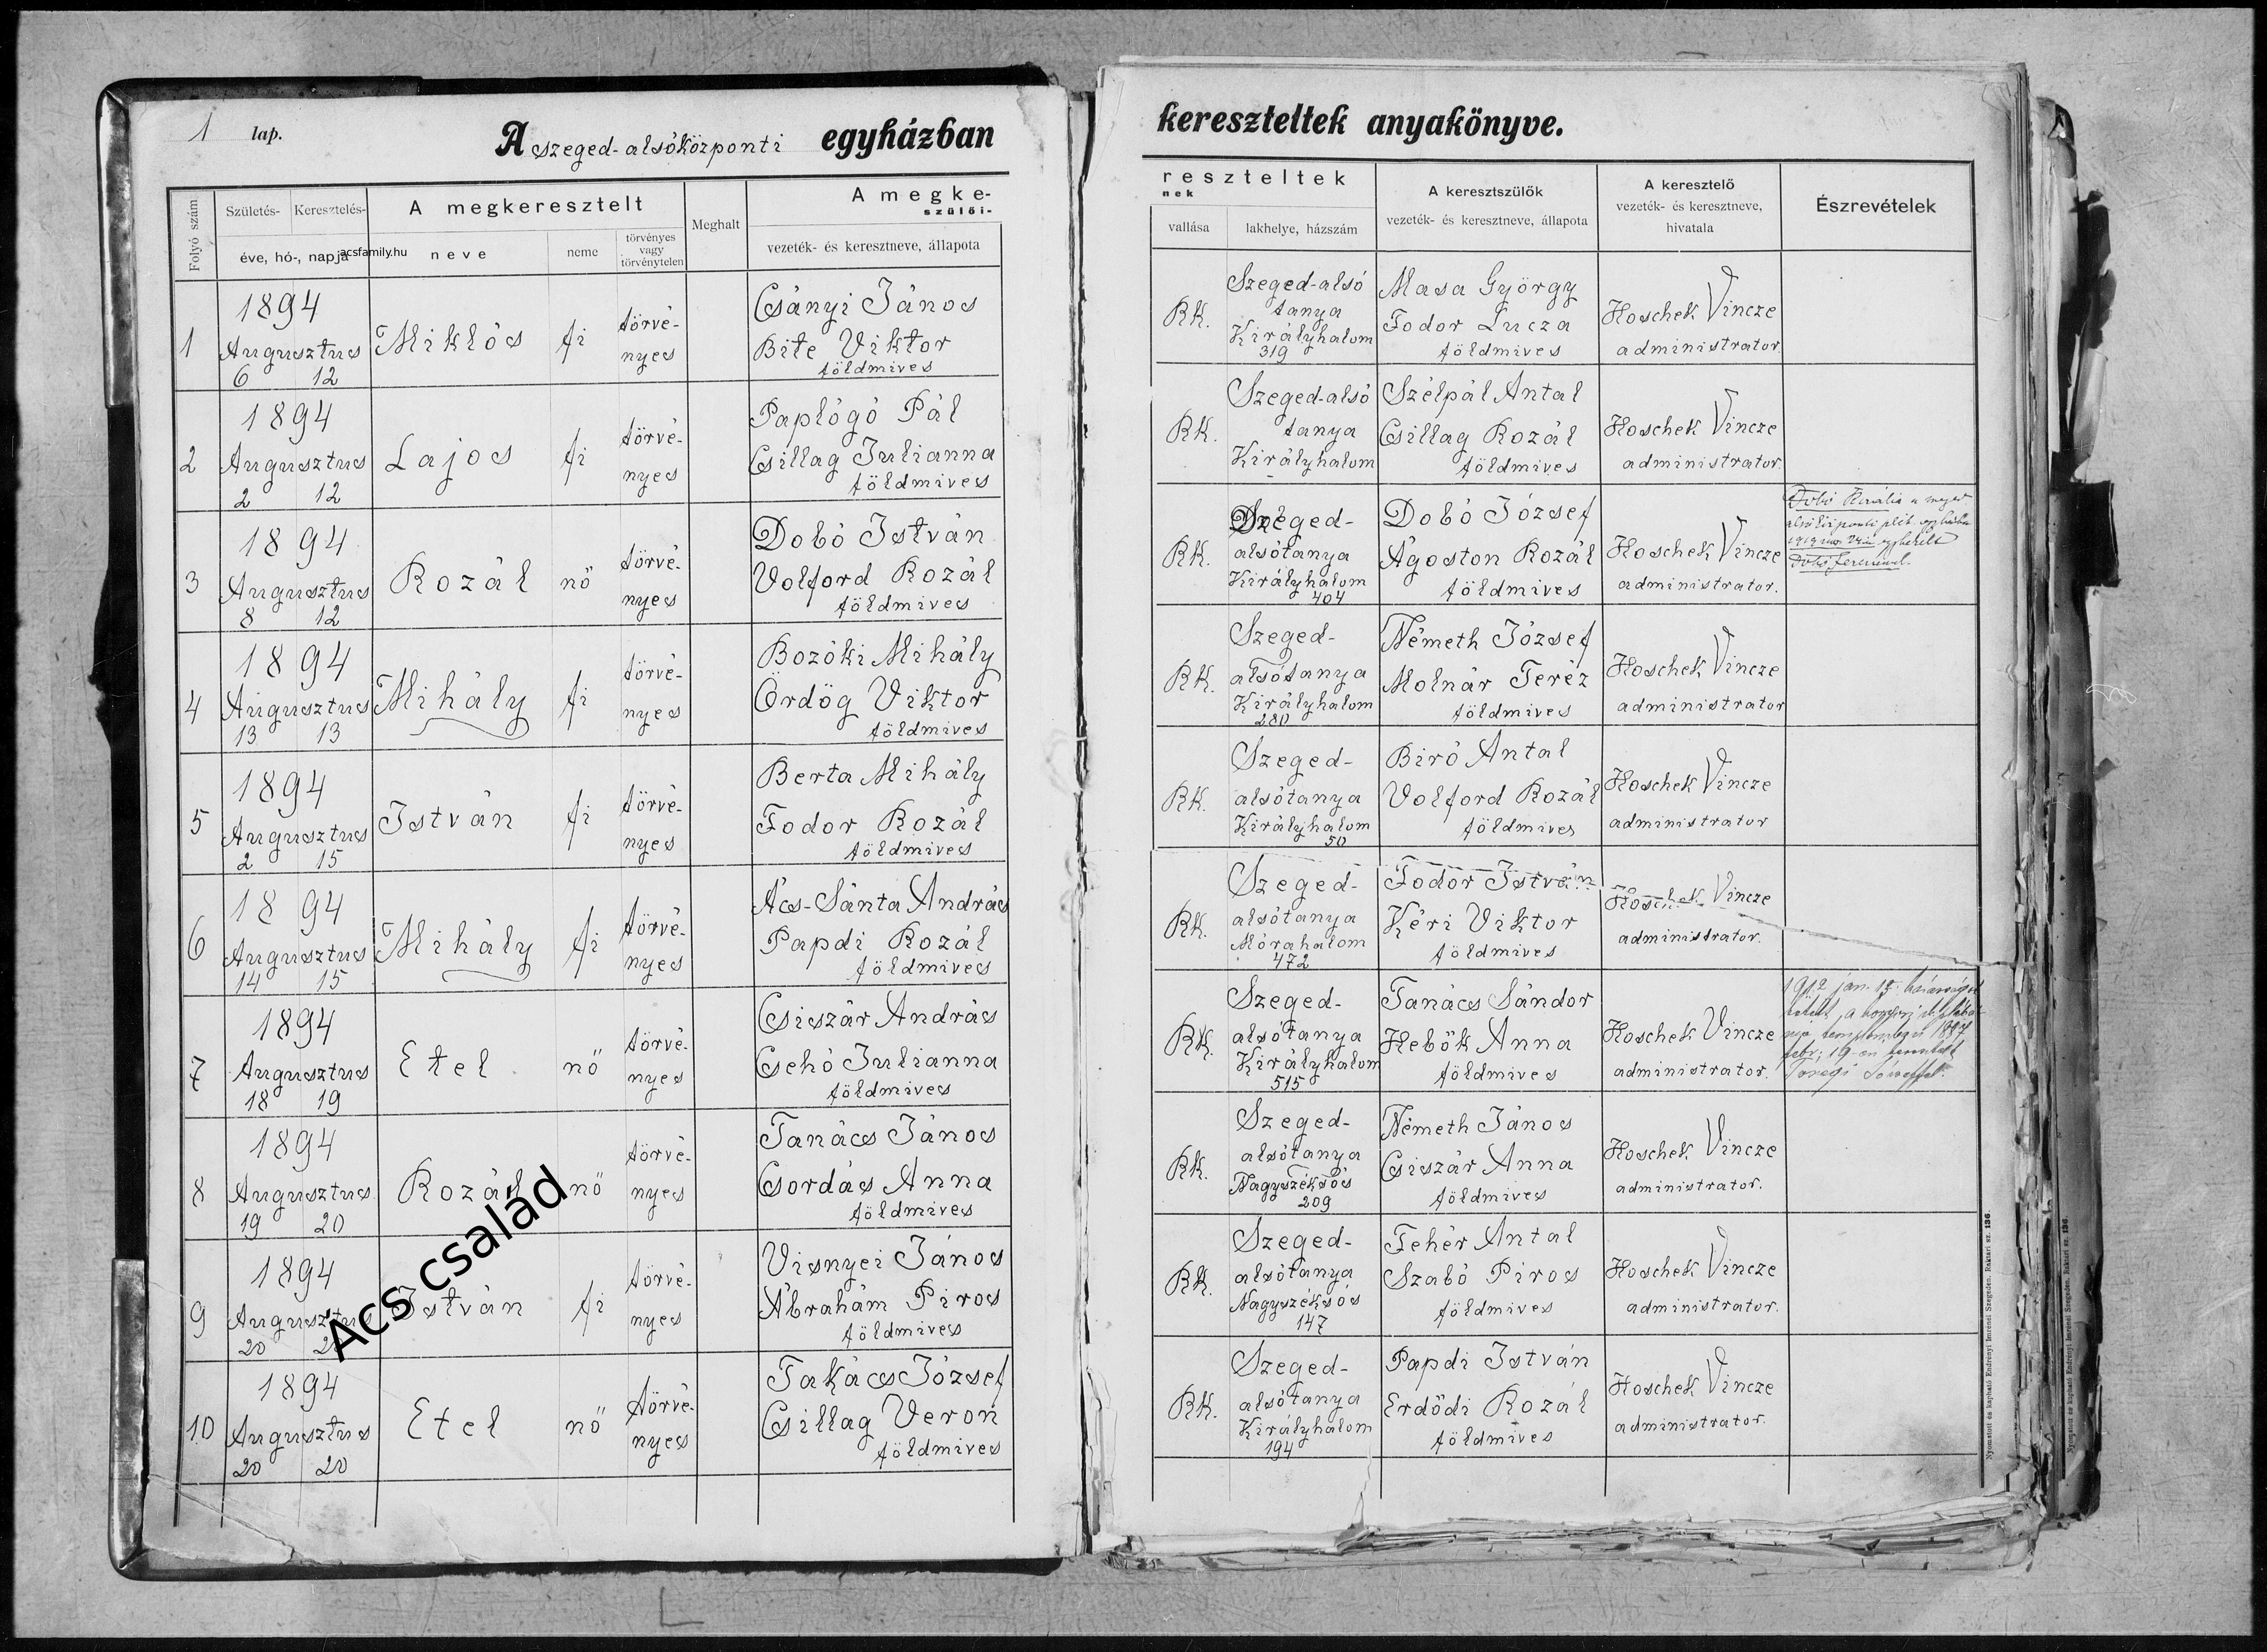 1 lap.
A szeged-alsóközponti egyházban
Folyó szám
Születés-
Keresztelés-
éve, hó-, napja
acsfamily.hu
A megkeresztelt
neve
neme
törvényes
vagy
törvénytelen
Meghalt
A megke-
szülői-
vezeték- és keresztneve, állapota
1
1894
Augusztus
6 12
Miklós
fi
törvé-
nyes
Csányi János
Bite Viktor
földmives
2
1894
Augusztus
2 12
Lajos
fi
törvé-
nyes
Paplógó Pál
Csillag Julianna
földmives
3
1894
Augusztus
8 12
Rozál
nő
törvé-
nyes
Dobó István
Volford Rozál
földmives
4
1894
Augusztus
13 13
Mihály
fi
törvé-
nyes
Bozóki Mihály
Ördög Viktor
földmives
5
1894
Augusztus
2 15
István
fi
törvé-
nyes
Berta Mihály
Fodor Rozál
földmives
6
1894
Augusztus
14 15
Mihály
fi
törvé-
nyes
Ács-Sánta András
Papdi Rozál
földmives
7
1894
Augusztus
18 19
Etel
nő
törvé-
nyes
Csiszár András
Csehó Julianna
földmives
8
1894
Augusztus
19 20
Rozál
nő
törvé-
nyes
Tanács János
Csordás Anna
földmives
9
1894
Augusztus
20
István
fi
törvé-
nyes
Visnyei János
Ábrahám Piros
földmives
10
1894
Augusztus
20 20
Etel
nő
törvé-
nyes
Takács József
Csillag Veron
földmives
Acs család
kereszteltek anyakönyve.
reszteltek
nek
vallása
lakhelye, házszám
A keresztszülők
vezeték- és keresztneve, állapota
A keresztelő
vezeték- és keresztneve,
hivatala
Észrevételek
RK.
Szeged-alsó
tanya
Királyhalom
319
Masa György
Fodor Lucza
földmives
Hoschek Vincze
administrator.
RK.
Szeged-alsó
tanya
Királyhalom
Szélpál Antal
Csillag Rozál
földmives
Hoschek Vincze
administrator.
RK.
Szeged-
alsótanya
Királyhalom
404
Dobó József
Ágoston Rozál
földmives
Hoschek Vincze
administrator.
Dobó
1919
Dobó Ferenccel.
RK.
Szeged-
alsótanya
Királyhalom
280
Németh József
Molnár Teréz
földmives
Hoschek Vincze
administrator
RK.
Szeged-
alsótanya
Királyhalom
50
Biró Antal
Volford Rozál
földmives
Hoschek Vincze
administrator
RK.
Szeged-
alsótanya
Mórahalom
472
Fodor István
Kéri Viktor
földmives
Hoschek Vincze
administrator.
RK.
Szeged-
alsótanya
Királyhalom
515
Tanács Sándor
Hebők Anna
földmives
Hoschek Vincze
administrator.
1912 jan.
RK.
Szeged-
alsótanya
Nagyszéksós
209
Németh János
Csiszár Anna
földmives
Hoschek Vincze
administrator.
RK.
Szeged-
alsótanya
Nagyszéksós
147
Fehér Antal
Szabó Piros
földmives
Hoschek Vincze
administrator.
RK.
Szeged-
alsótanya
Királyhalom
194
Papdi István
Erdődi Rozál
földmives
Hoschek Vincze
administrator.
Nyomatott és kapható Endrényi Imrénél Szegeden. Raktári sz. 136.
Nyomatott és kapható Endrényi Imrénél Szegeden. Raktári sz. 136.